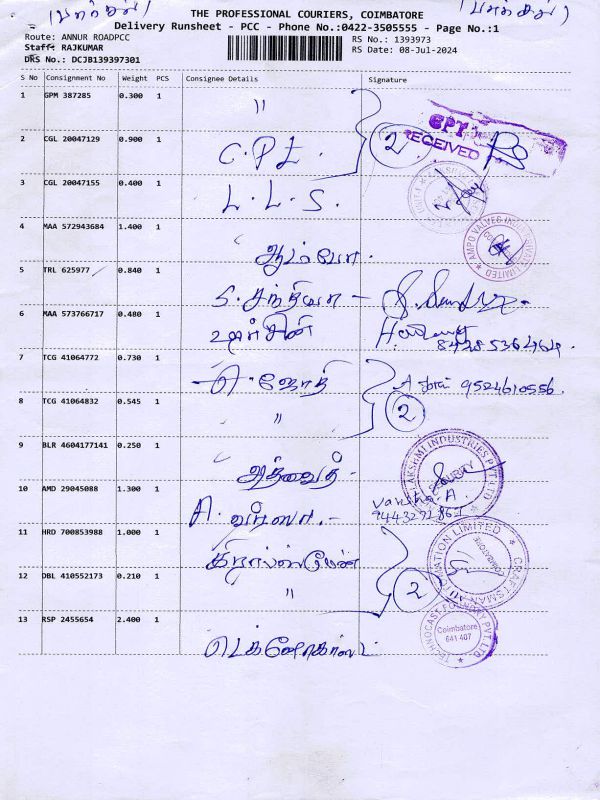 THE PROFESSIONAL COURIERS, COIMBATORE
Delivery Runsheet - PCC - Phone No.:0422-3505555 - Page No.:1
Route: ANNUR ROADPCC
RS No.: 1393973
Staff: RAJKUMAR
RS Date: 08-Jul-2024
DRS No.: DCJB139397301
S No Consignment No Weight PCS Consignee Details Signature
1 GPM 387285 0.300 1 "
CPT
RECEIVED
2 CGL 20047129 0.900 1 C.P.T. 2
3 CGL 20047155 0.400 1 L.L.S.
4 MAA 572943684 1.400 1 ஆம்போ.
AMPO VALVES INDIA PRIVATE LIMITED
5 TRL 625977 0.840 1
6 MAA 573766717 0.480 1
7 TCG 41064772 0.730 1 A. ஜோதி 9524610556
8 TCG 41064832 0.545 1 " 2
9 BLR 4604177141 0.250 1 அத்வைத்
LAKSHMI INDUSTRIES PVT LTD
SECURITY
10 AMD 29045088 1.300 1 A.
11 HRD 700853988 1.000 1
CRAFTSMAN AUTOMATION LIMITED
12 DBL 410552173 0.210 1 " 2
13 RSP 2455654 2.400 1
TECHNOCAST FOUNDRY PVT LTD
Coimbatore
641 407